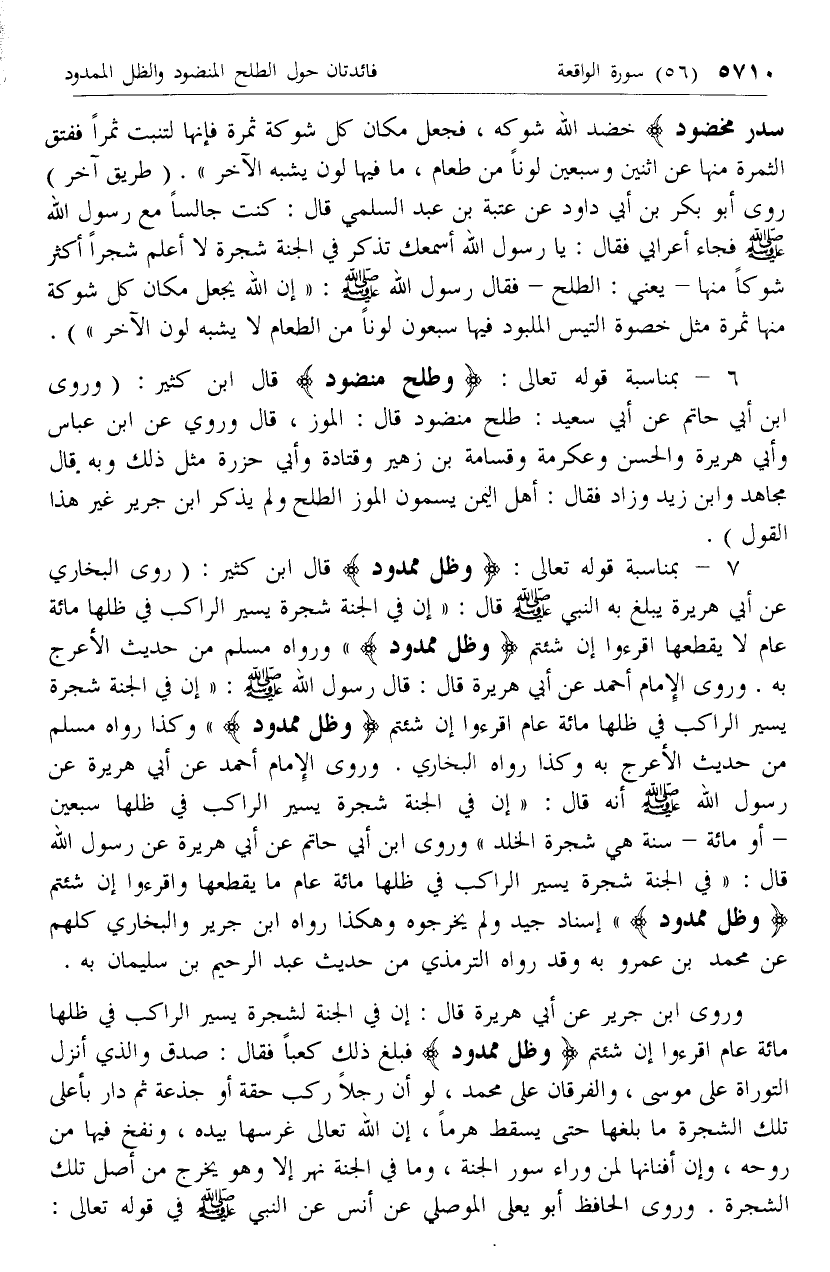 ٥٧١٠ (٥٦) سورة الواقعة فائدتان حول الطلح المنضود والظل الممدود
سدر مخضود ﴾ خضد الله شوكه ، فجعل مكان كل شوكة ثمرة فإنها لتنبت ثمراً ففتق
الثمرة منها عن اثنين وسبعين لوناً من طعام ، ما فيها لون يشبه الآخر » . ( طريق آخر )
روى أبو بكر بن أبي داود عن عتبة بن عبد السلمي قال : كنت جالساً مع رسول الله
ﷺ فجاء أعرابي فقال : يا رسول الله أسمعك تذكر في الجنة شجرة لا أعلم شجراً أكثر
شوكاً منها – يعني : الطلح – فقال رسول الله ﷺ : « إن الله يجعل مكان كل شوكة
منها ثمرة مثل خصوة التيس الملبود فيها سبعون لوناً من الطعام لا يشبه لون الآخر » ) .
٦ – بمناسبة قوله تعالى : ﴿ وطلح منضود ﴾ قال ابن كثير : ( وروى
ابن أبي حاتم عن أبي سعيد : طلح منضود قال : الموز ، قال وروي عن ابن عباس
وأبي هريرة والحسن وعكرمة وقسامة بن زهير وقتادة وأبي حزرة مثل ذلك وبه قال
مجاهد وابن زيد وزاد فقال : أهل اليمن يسمون الموز الطلح ولم يذكر ابن جرير غير هذا
القول ) .
٧ – بمناسبة قوله تعالى : ﴿ وظل ممدود ﴾ قال ابن كثير : ( روى البخاري
عن أبي هريرة يبلغ به النبي ﷺ قال : « إن في الجنة شجرة يسير الراكب في ظلها مائة
عام لا يقطعها اقرءوا إن شئتم ﴿ وظل ممدود ﴾ » ورواه مسلم من حديث الأعرج
به . وروى الإمام أحمد عن أبي هريرة قال : قال رسول الله ﷺ : « إن في الجنة شجرة
يسير الراكب في ظلها مائة عام اقرءوا إن شئتم ﴿ وظل ممدود ﴾ » وكذا رواه مسلم
من حديث الأعرج به وكذا رواه البخاري . وروى الإمام أحمد عن أبي هريرة عن
رسول الله ﷺ أنه قال : « إن في الجنة شجرة يسير الراكب في ظلها سبعين
– أو مائة – سنة هي شجرة الخلد » وروى ابن أبي حاتم عن أبي هريرة عن رسول الله
قال : « في الجنة شجرة يسير الراكب في ظلها مائة عام ما يقطعها واقرءوا إن شئتم
﴿ وظل ممدود ﴾ » إسناد جيد ولم يخرجوه وهكذا رواه ابن جرير والبخاري كلهم
عن محمد بن عمرو به وقد رواه الترمذي من حديث عبد الرحيم بن سليمان به .
وروى ابن جرير عن أبي هريرة قال : إن في الجنة لشجرة يسير الراكب في ظلها
مائة عام اقرءوا إن شئتم ﴿ وظل ممدود ﴾ فبلغ ذلك كعباً فقال : صدق والذي أنزل
التوراة على موسى ، والفرقان على محمد ، لو أن رجلاً ركب حقة أو جذعة ثم دار بأعلى
تلك الشجرة ما بلغها حتى يسقط هرماً ، إن الله تعالى غرسها بيده ، ونفخ فيها من
روحه ، وإن أفنانها لمن وراء سور الجنة ، وما في الجنة نهر إلا وهو يخرج من أصل تلك
الشجرة . وروى الحافظ أبو يعلى الموصلي عن أنس عن النبي ﷺ في قوله تعالى :